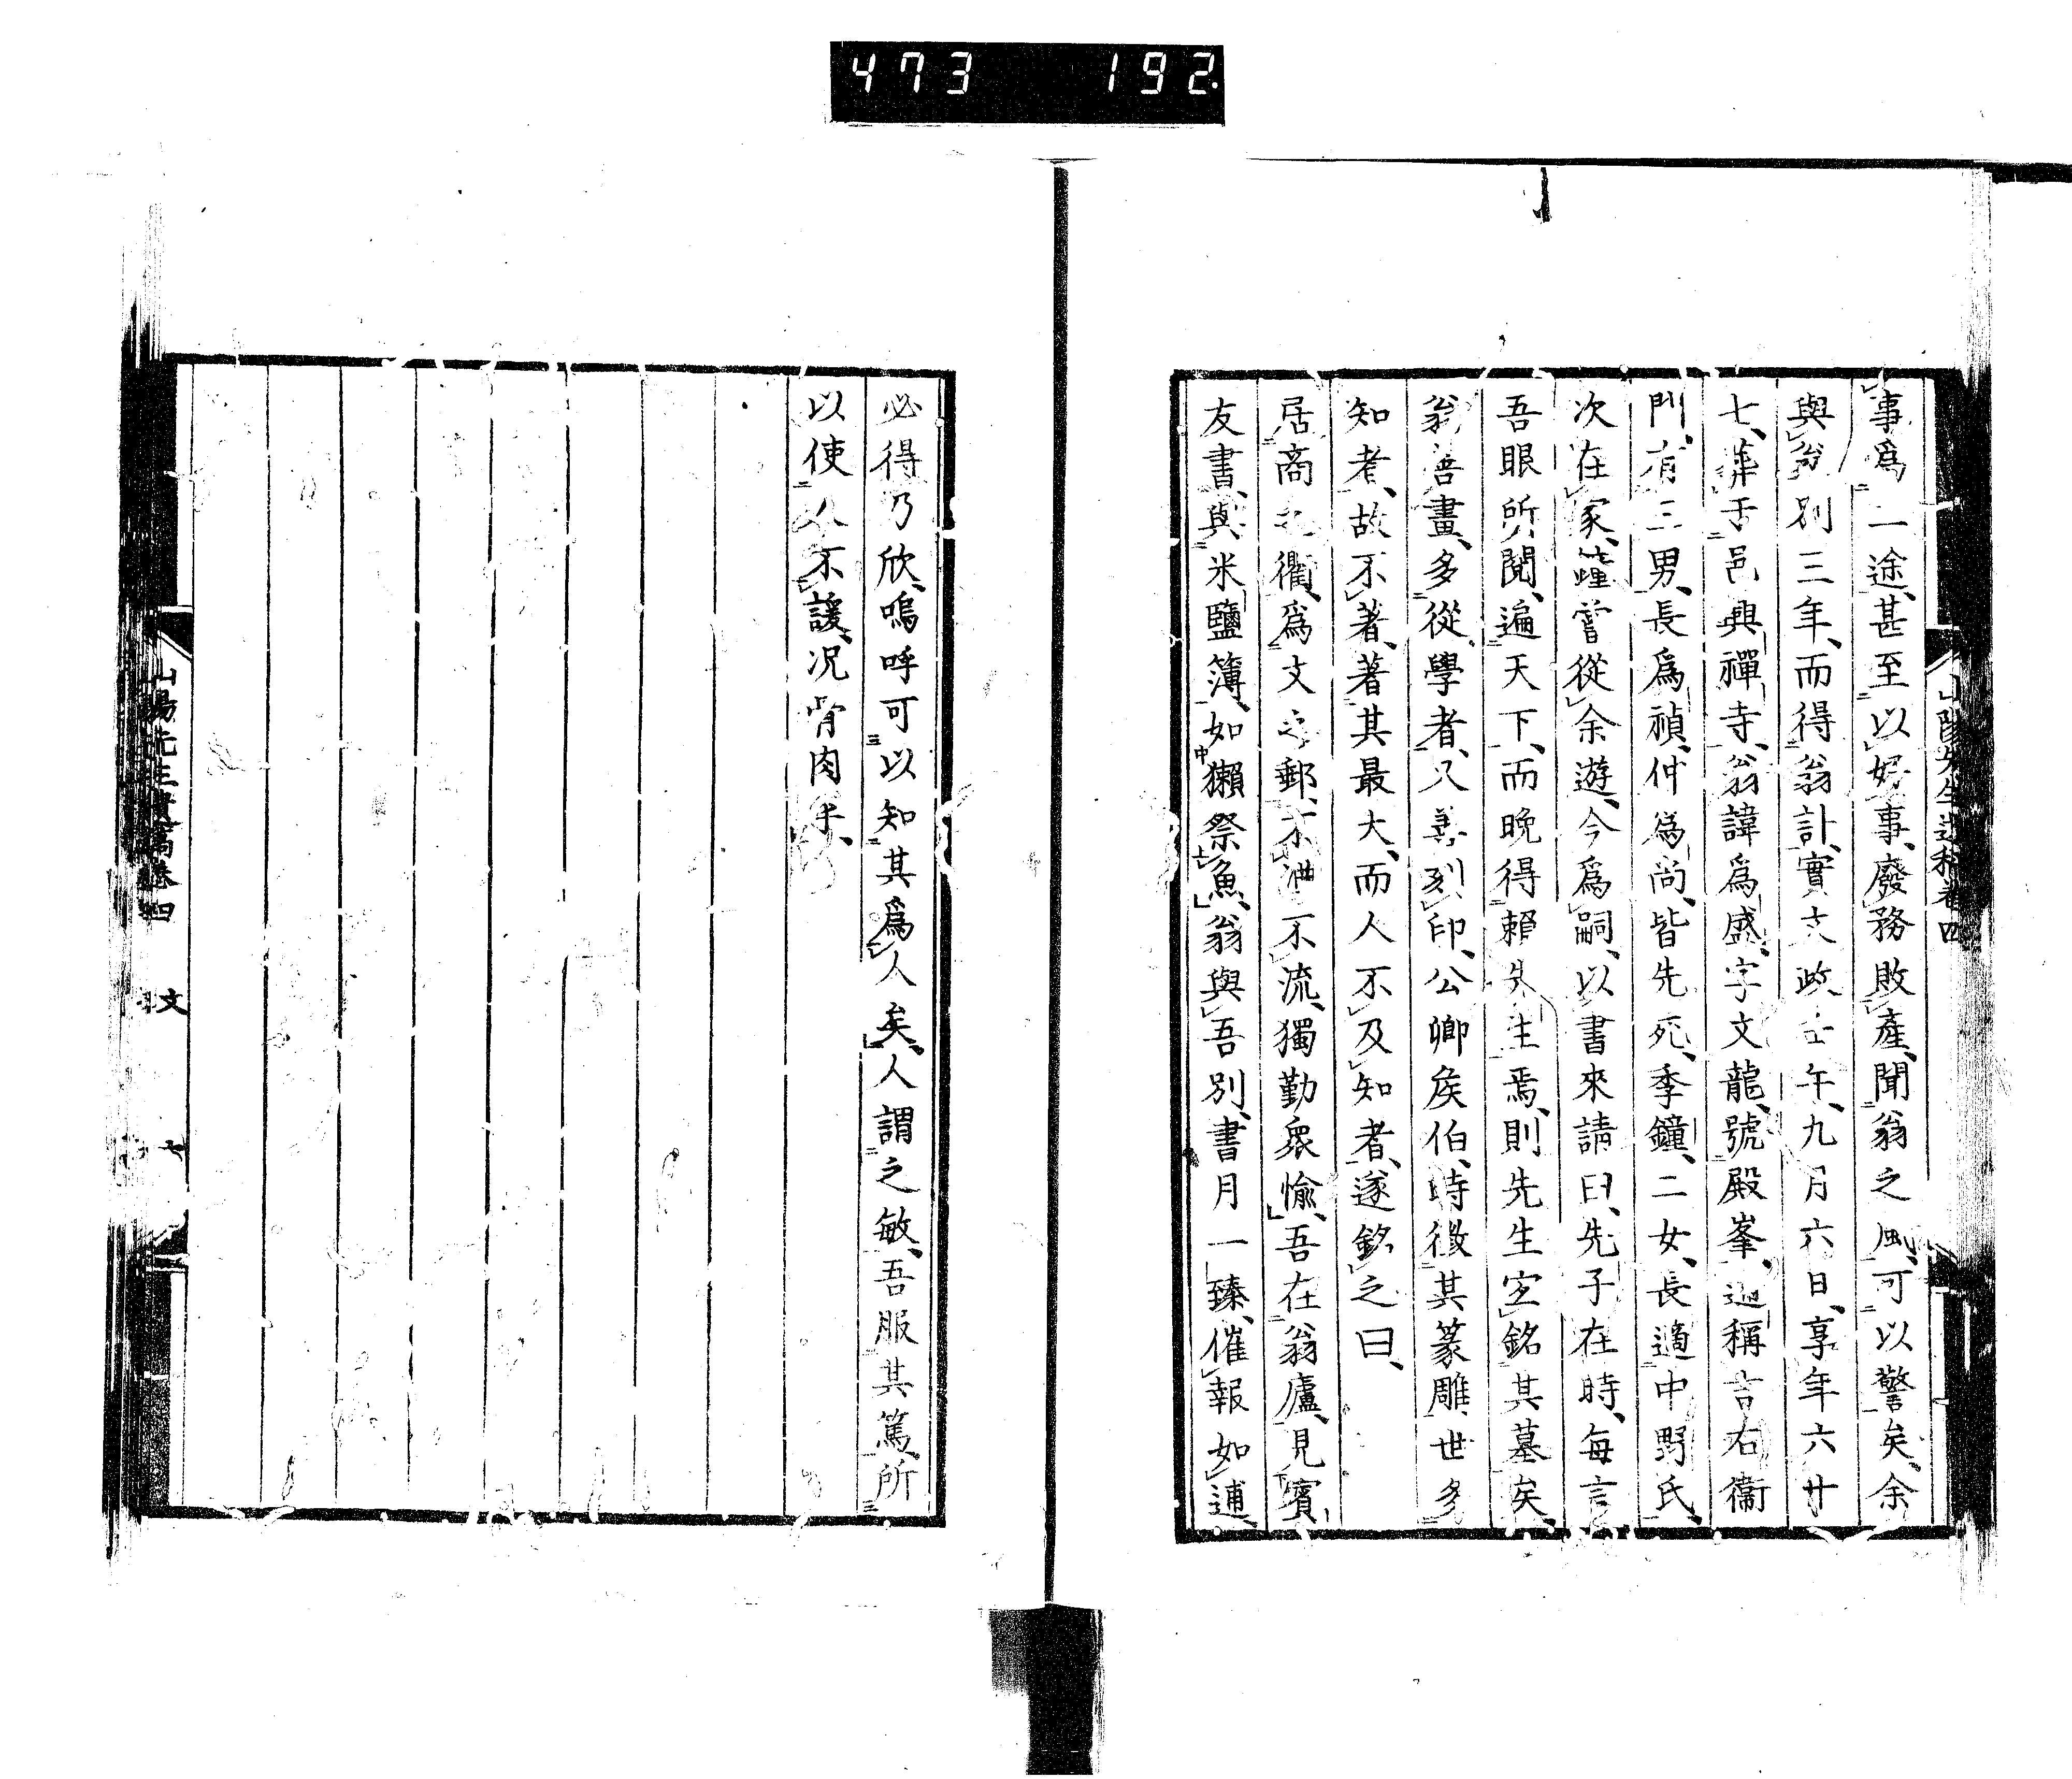 473 192
山陽先生遺稿卷四
事爲一途、甚至以好事、廢務敗產、聞翁之風、可以警矣、余
與翁別三年、而得翁訃、實文政壬午、九月六日、享年六十
七、葬于邑興禪寺、翁諱爲盛、字文龍、號殿峯、通稱吉右衞
門、有三男、長爲禎、仲爲尚、皆先死、季鐘、二女、長適中野氏、
次在家、鐘嘗從余遊、今爲嗣、以書來請曰、先子在時、每言
吾眼所閱、遍天下、而晚得賴先生焉、則先生宜銘其墓矣、
翁善畫、多從學者、又善刻印、公卿矦伯、時徵其篆雕、世多
知者、故不著、著其最大、而人不及知者、遂銘之曰、
居商之衢、爲文之郵、不滯不流、獨勤衆愉、吾在翁廬、見賓
友書、與米鹽簿、如獺祭魚、翁與吾別、書月一臻、催報如逋、
必得乃欣、嗚呼可以知其爲人矣、人謂之敏、吾服其篤、所
以使人不諼、況骨肉乎、
山陽先生遺稿卷四 文 七